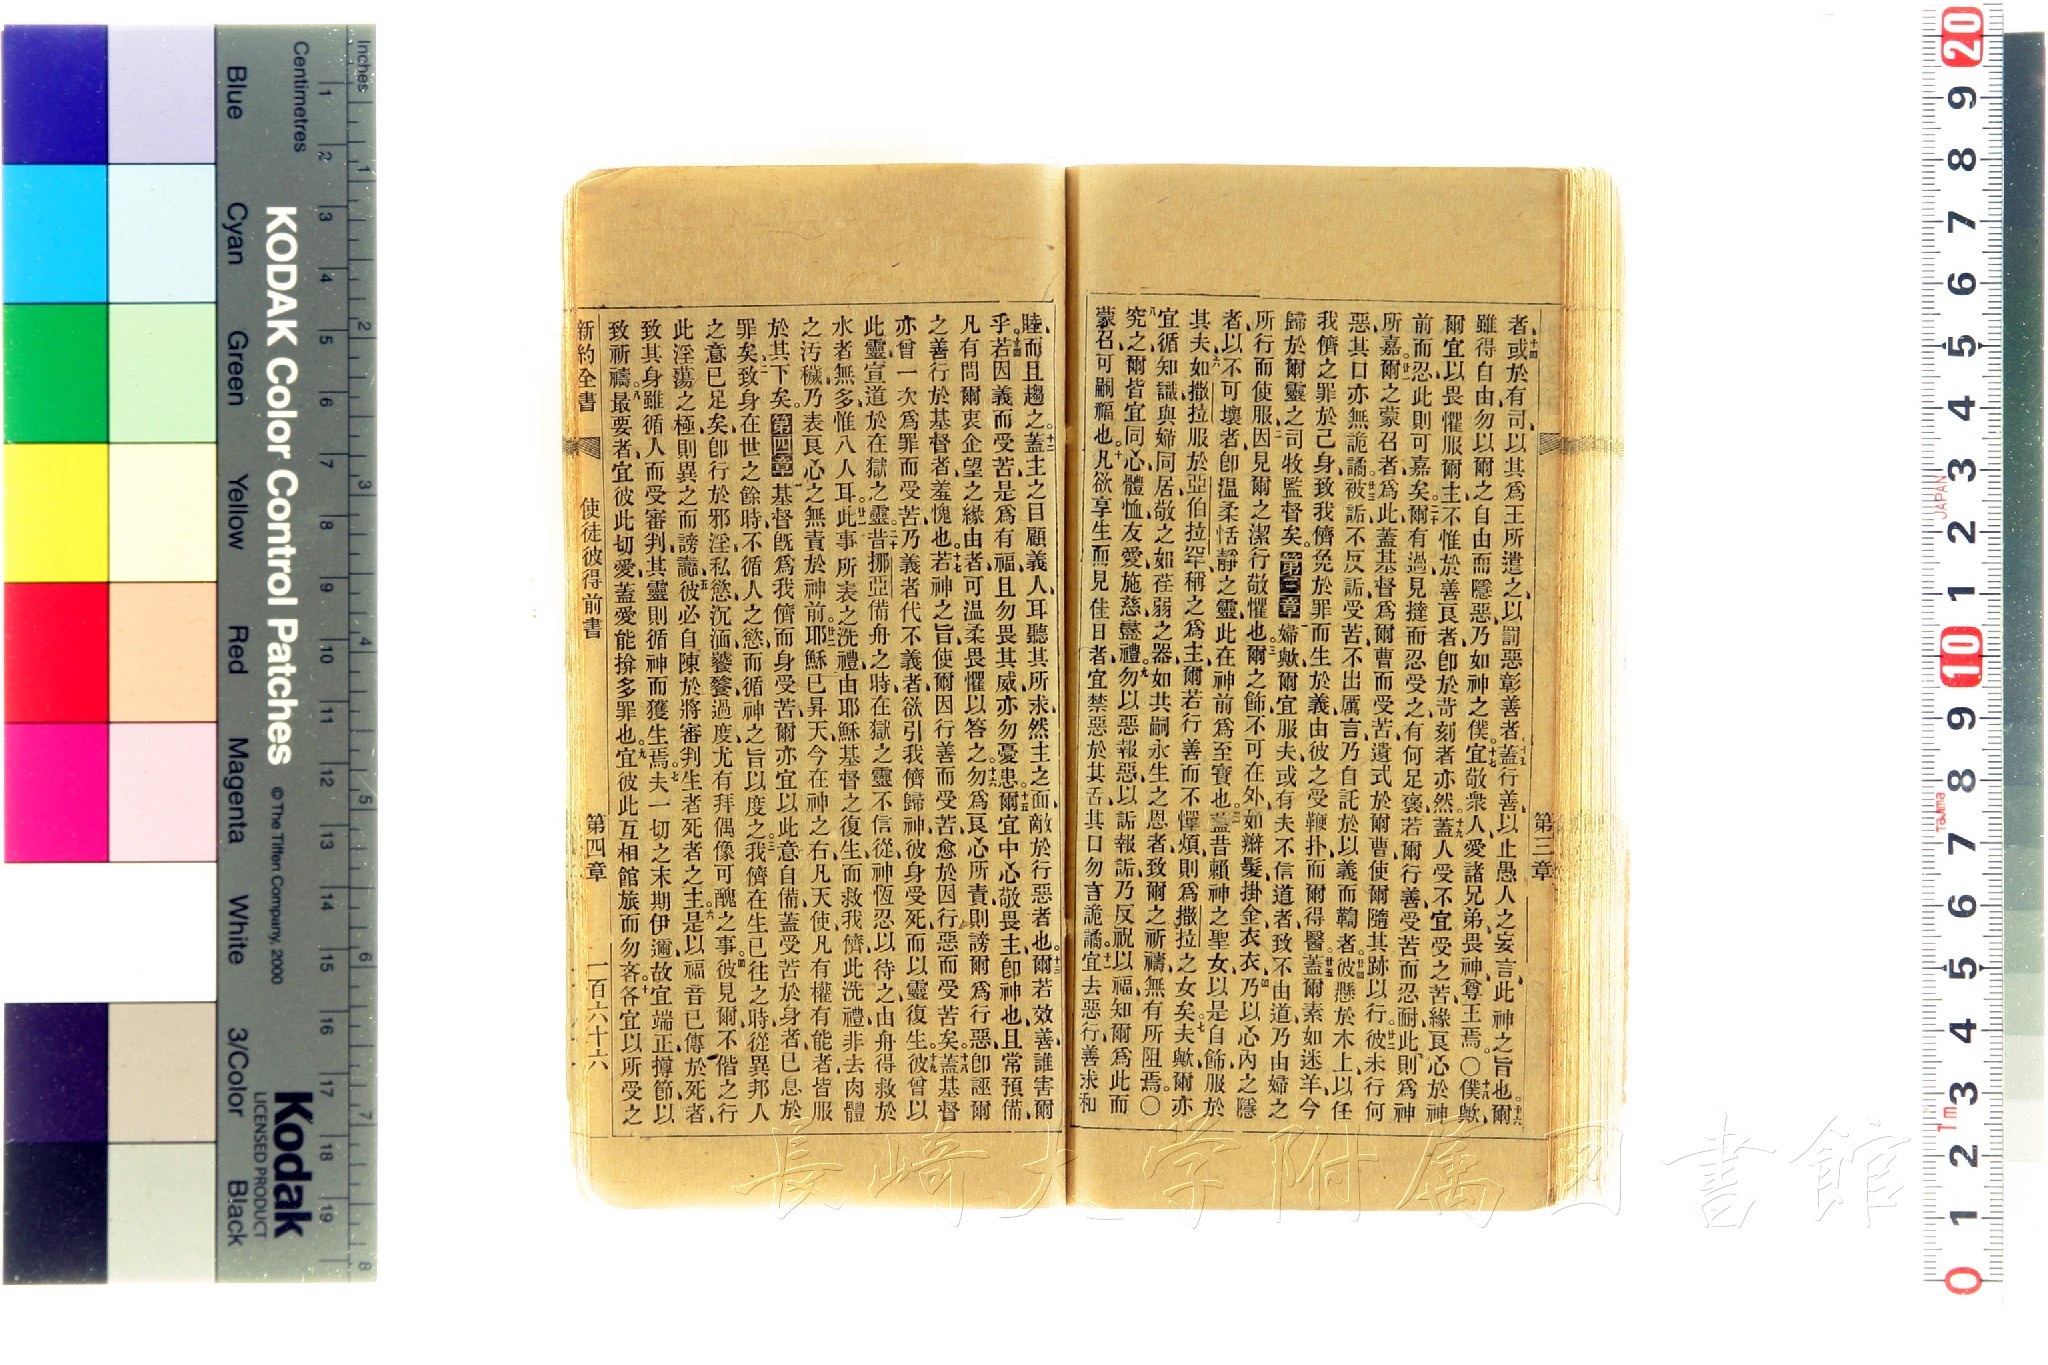 第三章
者、或於有司、以其爲王所遣之、以罰惡彰善者、蓋行善、以止愚人之妄言、此神之旨也、爾
雖得自由、勿以爾之自由而隱惡、乃如神之僕、宜敬衆人、愛諸兄弟、畏神、尊王焉。〇僕歟、
爾宜以畏懼服爾主、不惟於善良者、卽於苛刻者亦然、蓋人受不宜受之苦、緣良心於神
前而忍、此則可嘉矣、爾有過見撻而忍受之、有何足褒、若爾行善受苦而忍耐、此則爲神
所嘉、爾之蒙召者爲此、蓋基督爲爾曹而受苦、遺式於爾曹、使爾隨其跡以行、彼未行何
惡、其口亦無詭譎、被詬不反詬、受苦不出厲言、乃自託於以義而鞫者、彼懸於木上、以任
我儕之罪於己身、致我儕免於罪、而生於義、由彼之受鞭扑而爾得醫。蓋爾素如迷羊、今
歸於爾靈之司牧監督矣。第三章婦歟、爾宜服夫、或有夫不信道者、致不由道、乃由婦之
所行而使服、因見爾之潔行敬懼也、爾之飾不可在外、如辮髮掛金衣衣、乃以心內之隱
者、以不可壞者、卽溫柔恬靜之靈、此在神前爲至寶也、蓋昔賴神之聖女、以是自飾、服於
其夫、如撒拉服於亞伯拉罕、稱之爲主、爾若行善而不憚煩、則爲撒拉之女矣、夫歟、爾亦
宜循知識與婦同居、敬之如荏弱之器、如共嗣永生之恩者、致爾之祈禱無有所阻焉。〇
究之爾皆宜同心體恤、友愛施慈、盡禮、勿以惡報惡、以詬報詬、乃反祝以福、知爾爲此而
蒙召、可嗣福也。凡欲享生而見佳日者、宜禁惡於其舌、其口勿言詭譎。宜去惡行善、求和
睦、而且趨之。蓋主之目顧義人、耳聽其所求、然主之面、敵於行惡者也。爾若效善、誰害爾
乎、若因義而受苦、是爲有福、且勿畏其威、亦勿憂患、爾宜中心敬畏主卽神也、且常預備
凡有問爾衷企望之緣由者、可温柔畏懼以答之、勿爲良心所責、則謗爾爲行惡、卽誣爾
之善行於基督者、羞愧也、若神之旨使爾因行善而受苦、愈於因行惡而受苦矣、蓋基督
亦曾一次爲罪而受苦、乃義者代不義者、欲引我儕歸神、彼身受死而以靈復生、彼曾以
此靈宣道於在獄之靈、昔挪亞備舟之時、在獄之靈不信從、神恆忍以待之、由舟得救於
水者無多、惟八人耳、此事所表之洗禮、由耶穌基督之復生而救我儕、此洗禮非去肉體
之汚穢、乃表良心之無責於神前、耶穌已昇天、今在神之右、凡天使、凡有權有能者、皆服
於其下矣。第四章基督旣爲我儕而身受苦、爾亦宜以此意自備、蓋受苦於身者、已息於
罪矣、致身在世之餘時、不循人之慾、而循神之旨以度之、我儕在生已往之時、從異邦人
之意已足矣、卽行於邪淫私慾、沉湎饕餮過度、尤有拜偶像可醜之事、彼見爾不偕之行
此淫蕩之極、則異之而謗讟、彼必自陳於將審判生者死者之主、是以福音已傳於死者、
致其身雖循人而受審判、其靈則循神而獲生焉、夫一切之末期伊邇、故宜端正撙節、以
致祈禱。最要者、宜彼此切愛、蓋愛能揜多罪也、宜彼此互相館旅而勿吝、各宜以所受之
新約全書 使徒彼得前書 第四章 一百六十六